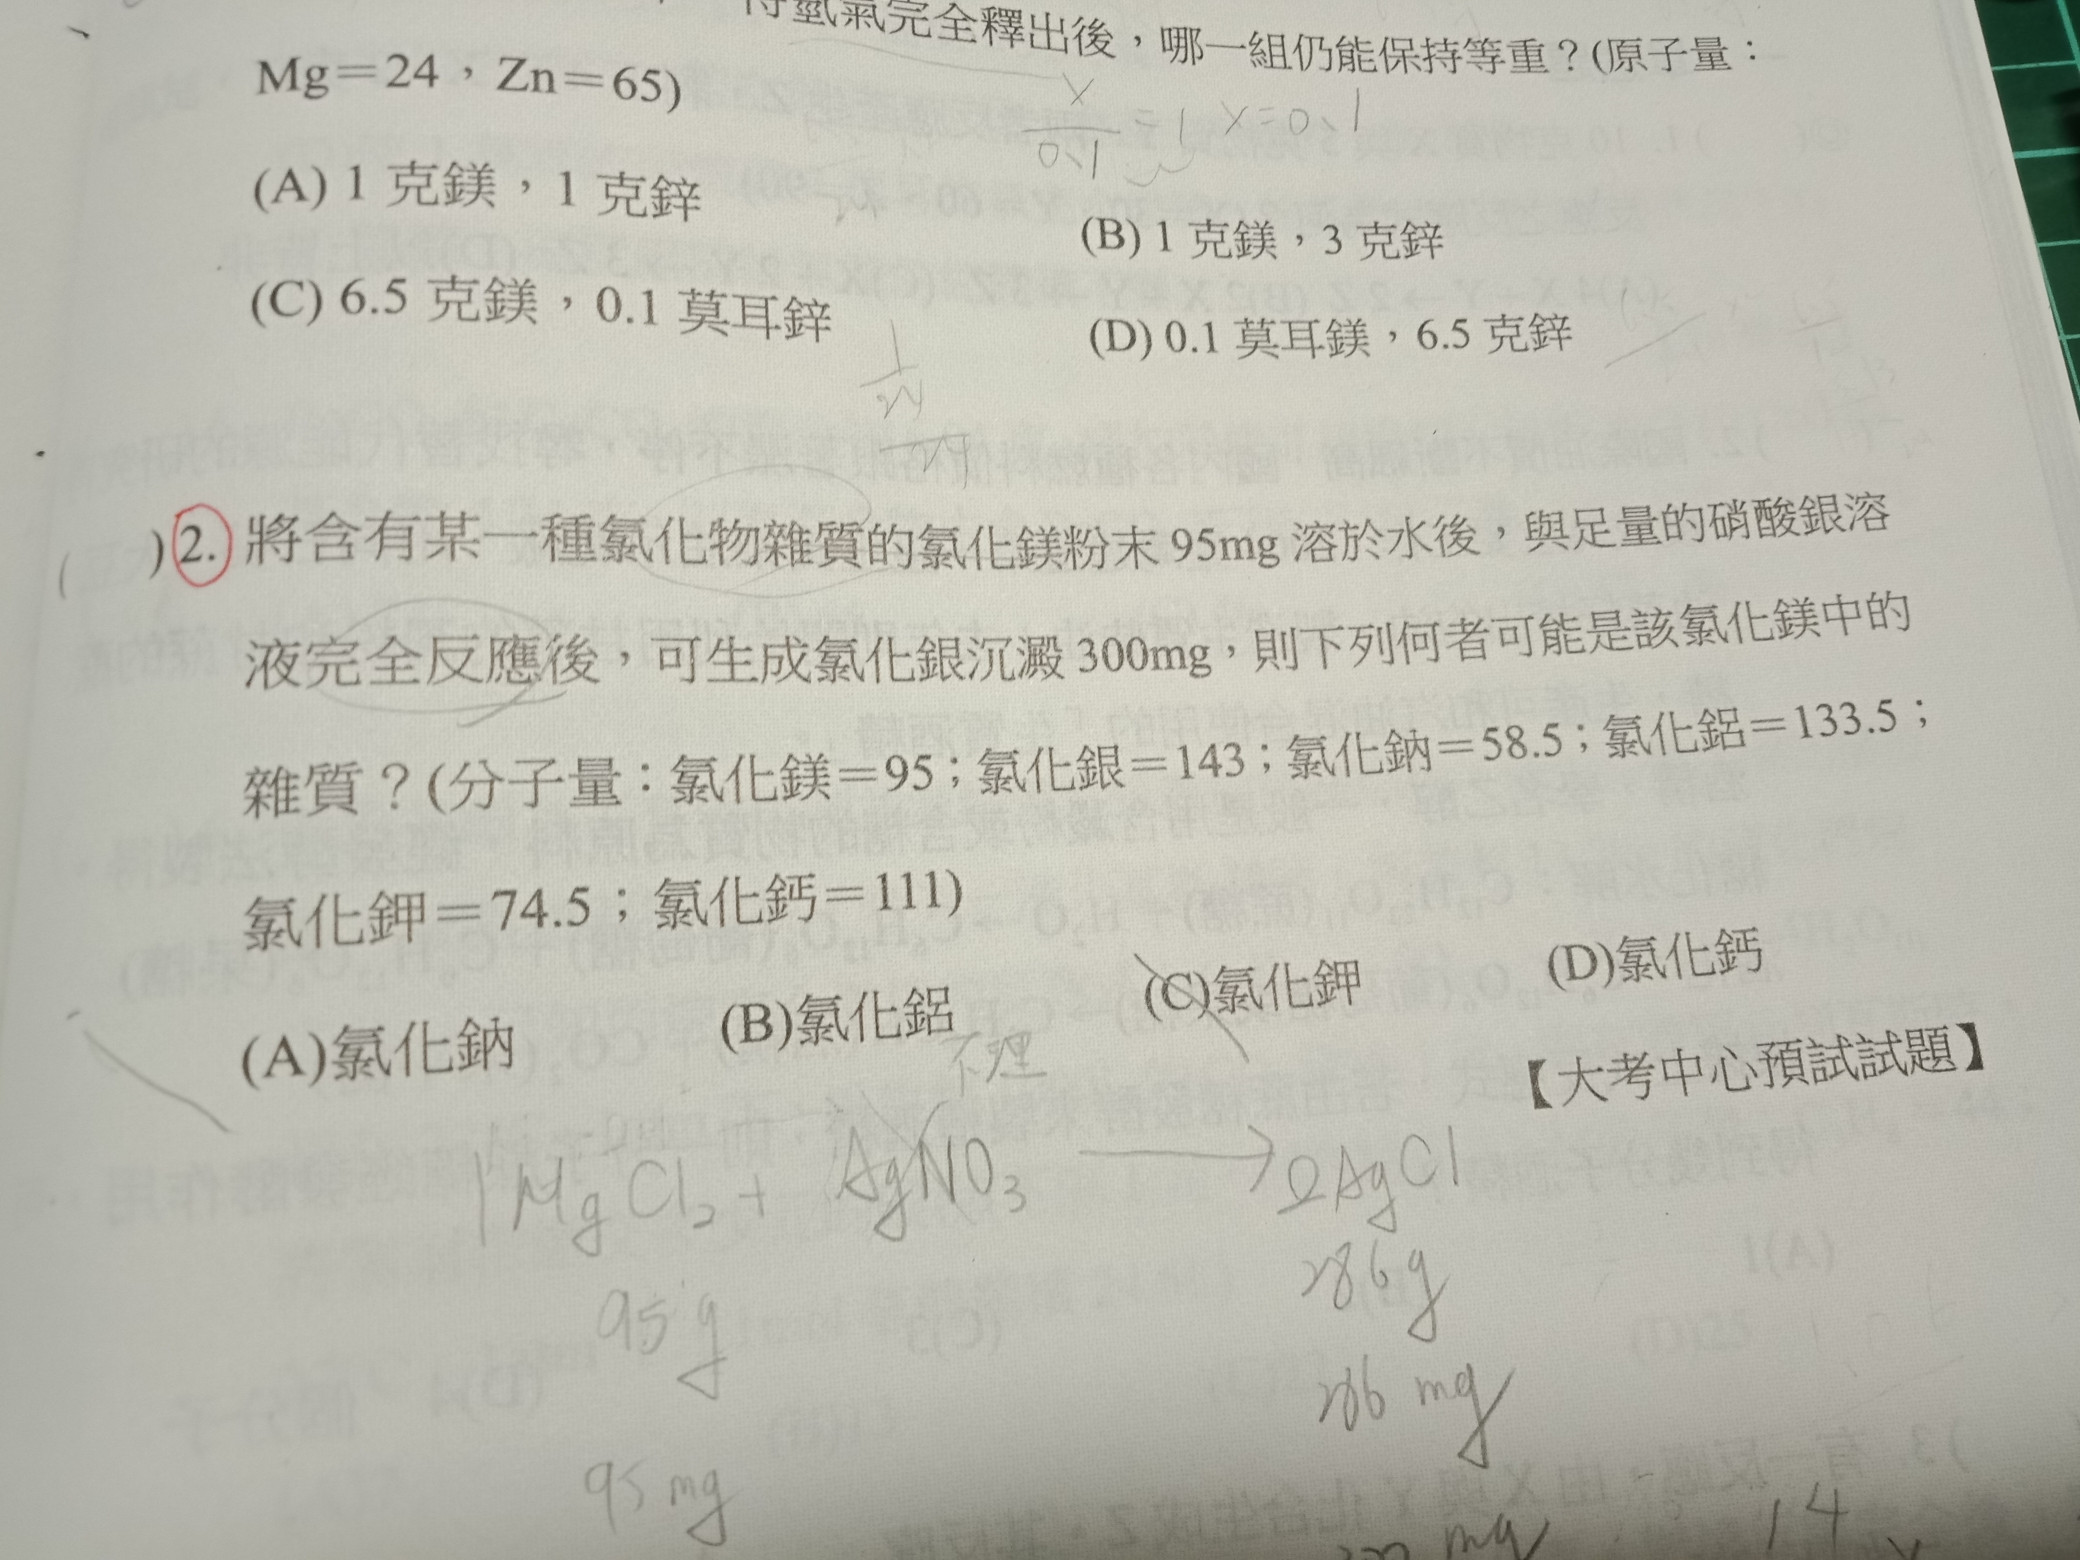 待氫氣完全釋出後，哪一組仍能保持等重？(原子量：
Mg＝24，Zn＝65)
x/0.1 = 1 x=0.1
(A) 1 克鎂，1 克鋅
(B) 1 克鎂，3 克鋅
(C) 6.5 克鎂，0.1 莫耳鋅
(D) 0.1 莫耳鎂，6.5 克鋅
1
24
24
( )2. 將含有某一種氯化物雜質的氯化鎂粉末 95mg 溶於水後，與足量的硝酸銀溶
液完全反應後，可生成氯化銀沉澱 300mg，則下列何者可能是該氯化鎂中的
雜質？(分子量：氯化鎂＝95；氯化銀＝143；氯化鈉＝58.5；氯化鋁＝133.5；
氯化鉀＝74.5；氯化鈣＝111)
(A)氯化鈉
(B)氯化鋁
(C)氯化鉀
(D)氯化鈣
不理
【大考中心預試試題】
1MgCl₂ + AgNO₃ → 2AgCl
95g
286g
286 mg
95 mg
mg
14